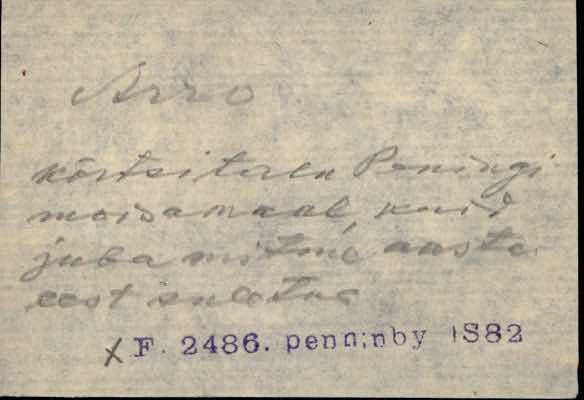 Arro
kõrtsitalu Peningi
moisamaal, kuid
juba mitme aasta
eest suletud
x F. 2486. penn;nby 1882